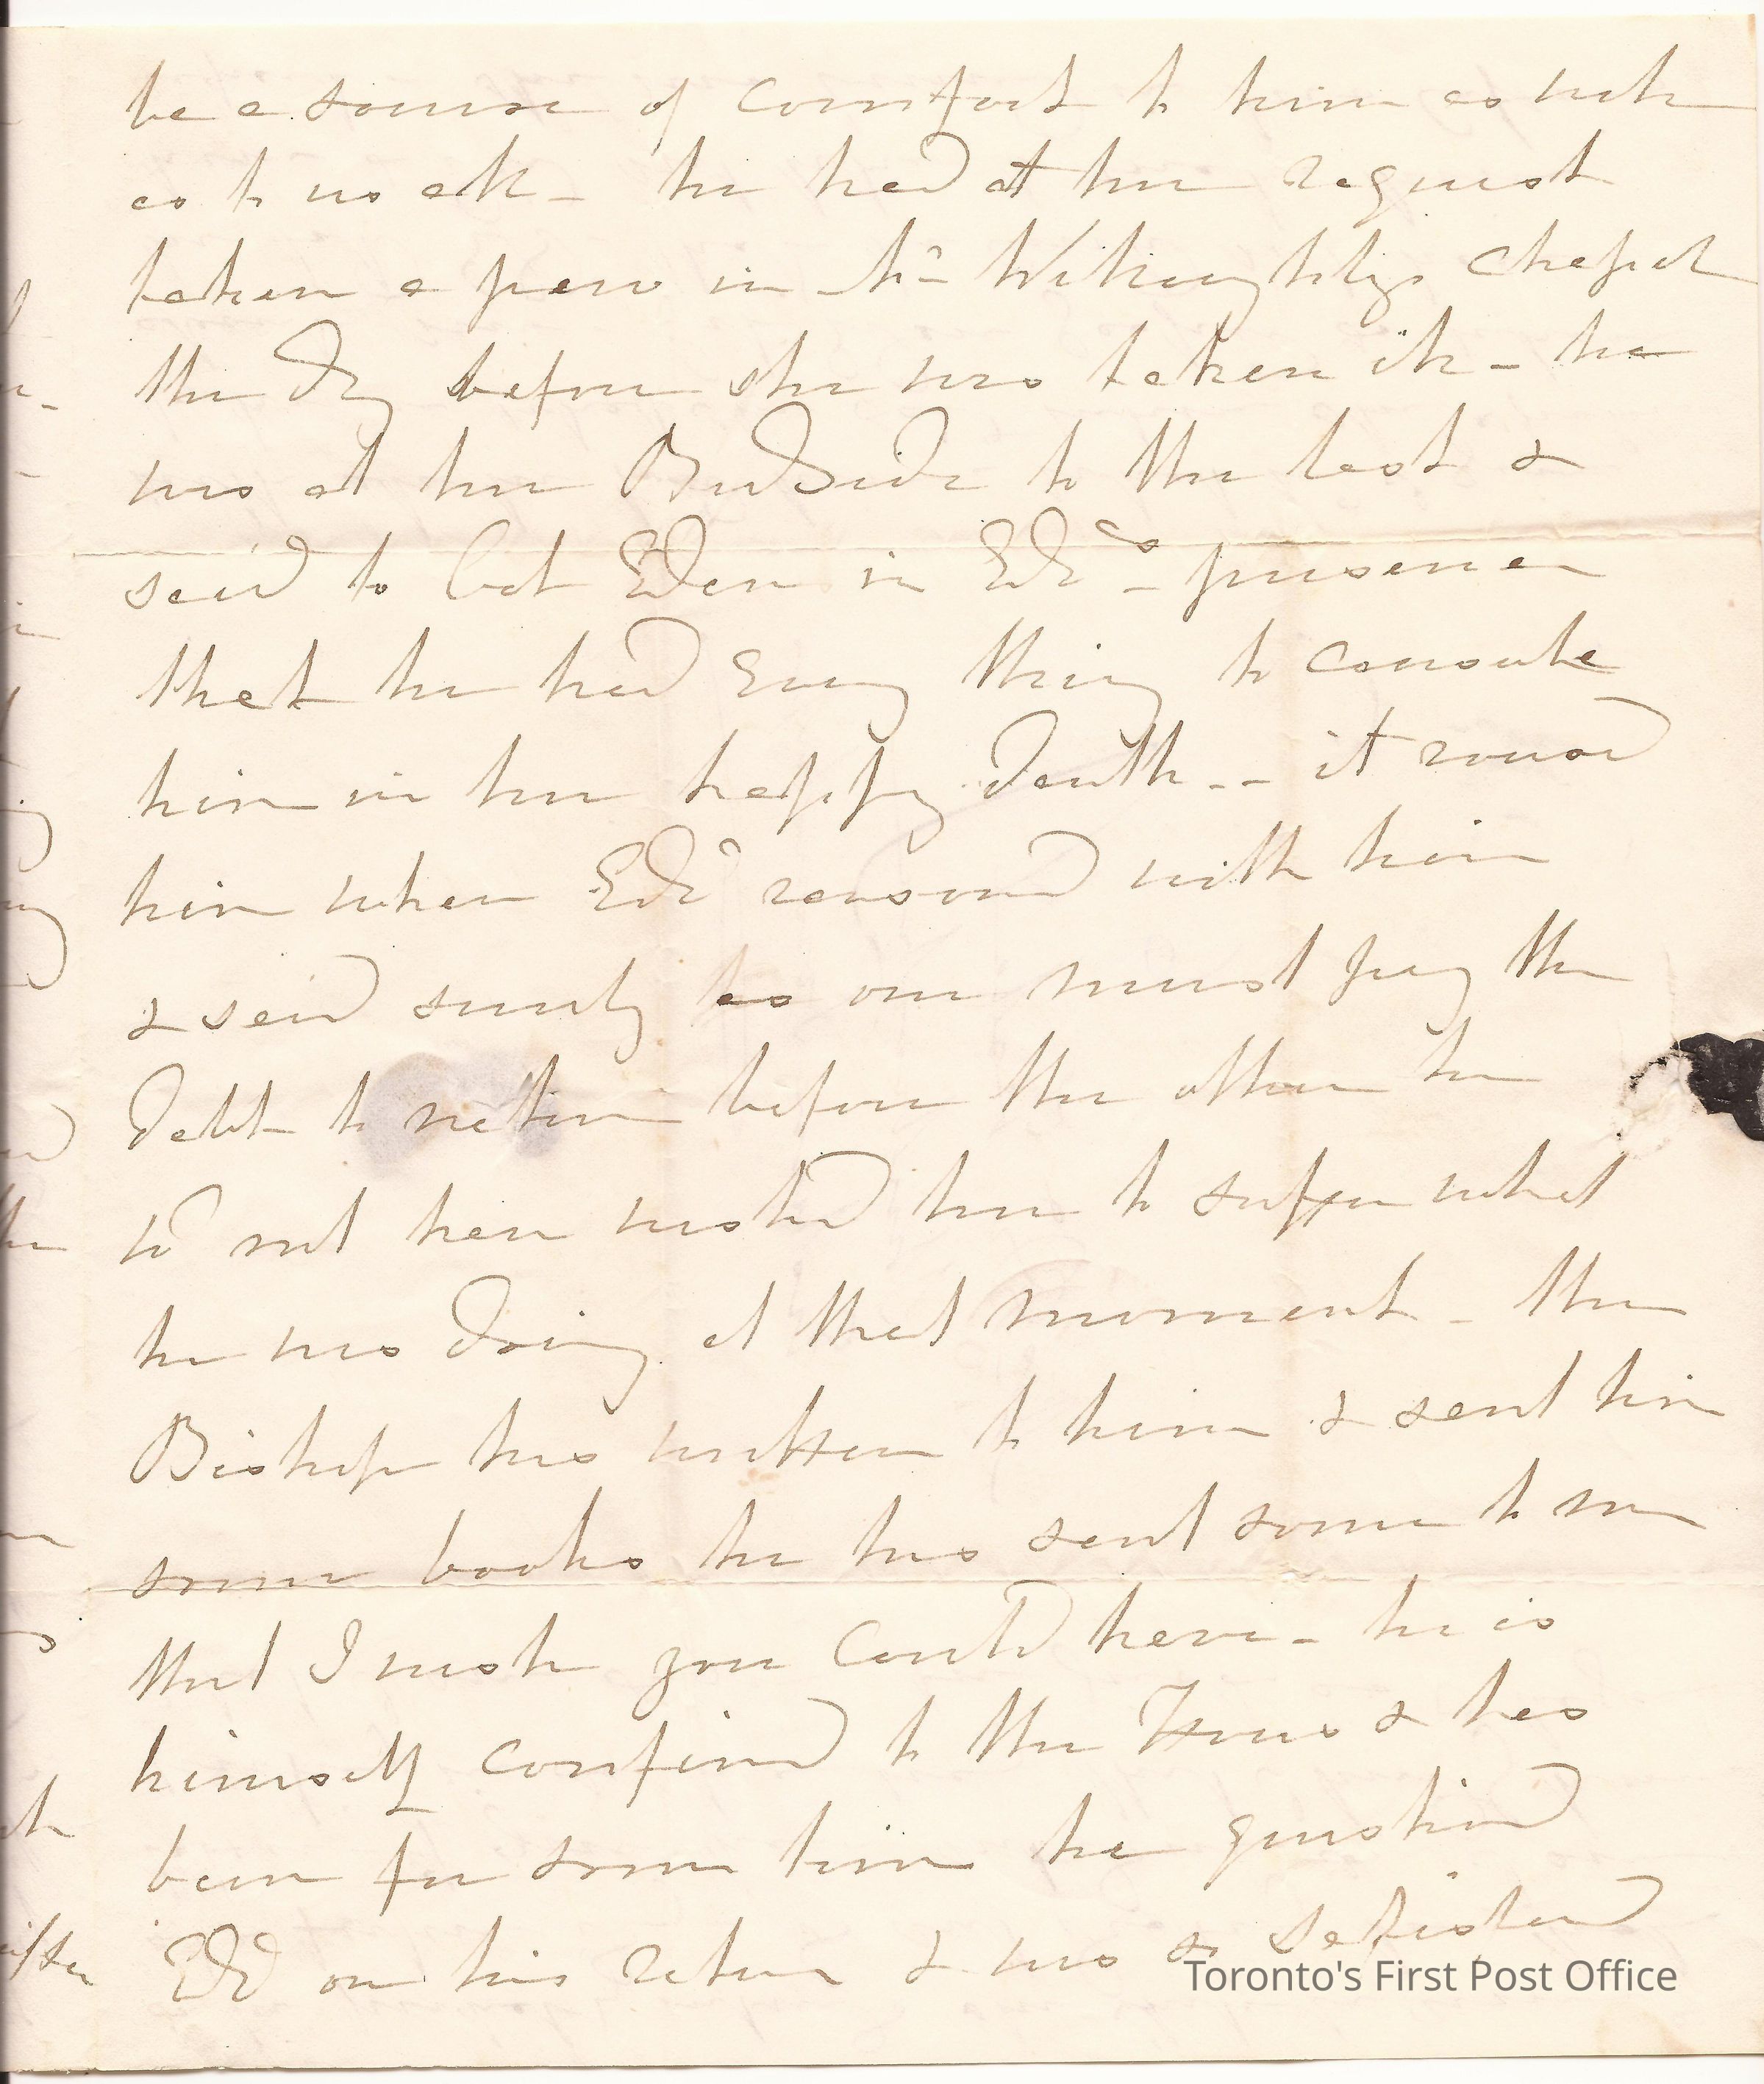 be a source of Comfort to him as well
as to us all - he had at her request
taken a pew in Mr Willoughbys Chapel
the day before she was taken ill - he
was at her BedSide to the last &
said to Col Eden in Edds - presence
that he had Every thing to console
him in her happy Death -- it rousd
him when Edd reasond with him
& said surely as one must pay the
Debt to nature before the other he
wd not have wishd her to suffer what
he was doing at that moment - the
Bishop has written to him & sent him
some books he has sent some to me
that I wish you Could have - he is
himself Confined to the House & has
been for some time he questiond
Edd on his return & was so satisfied
Toronto's First Post Office